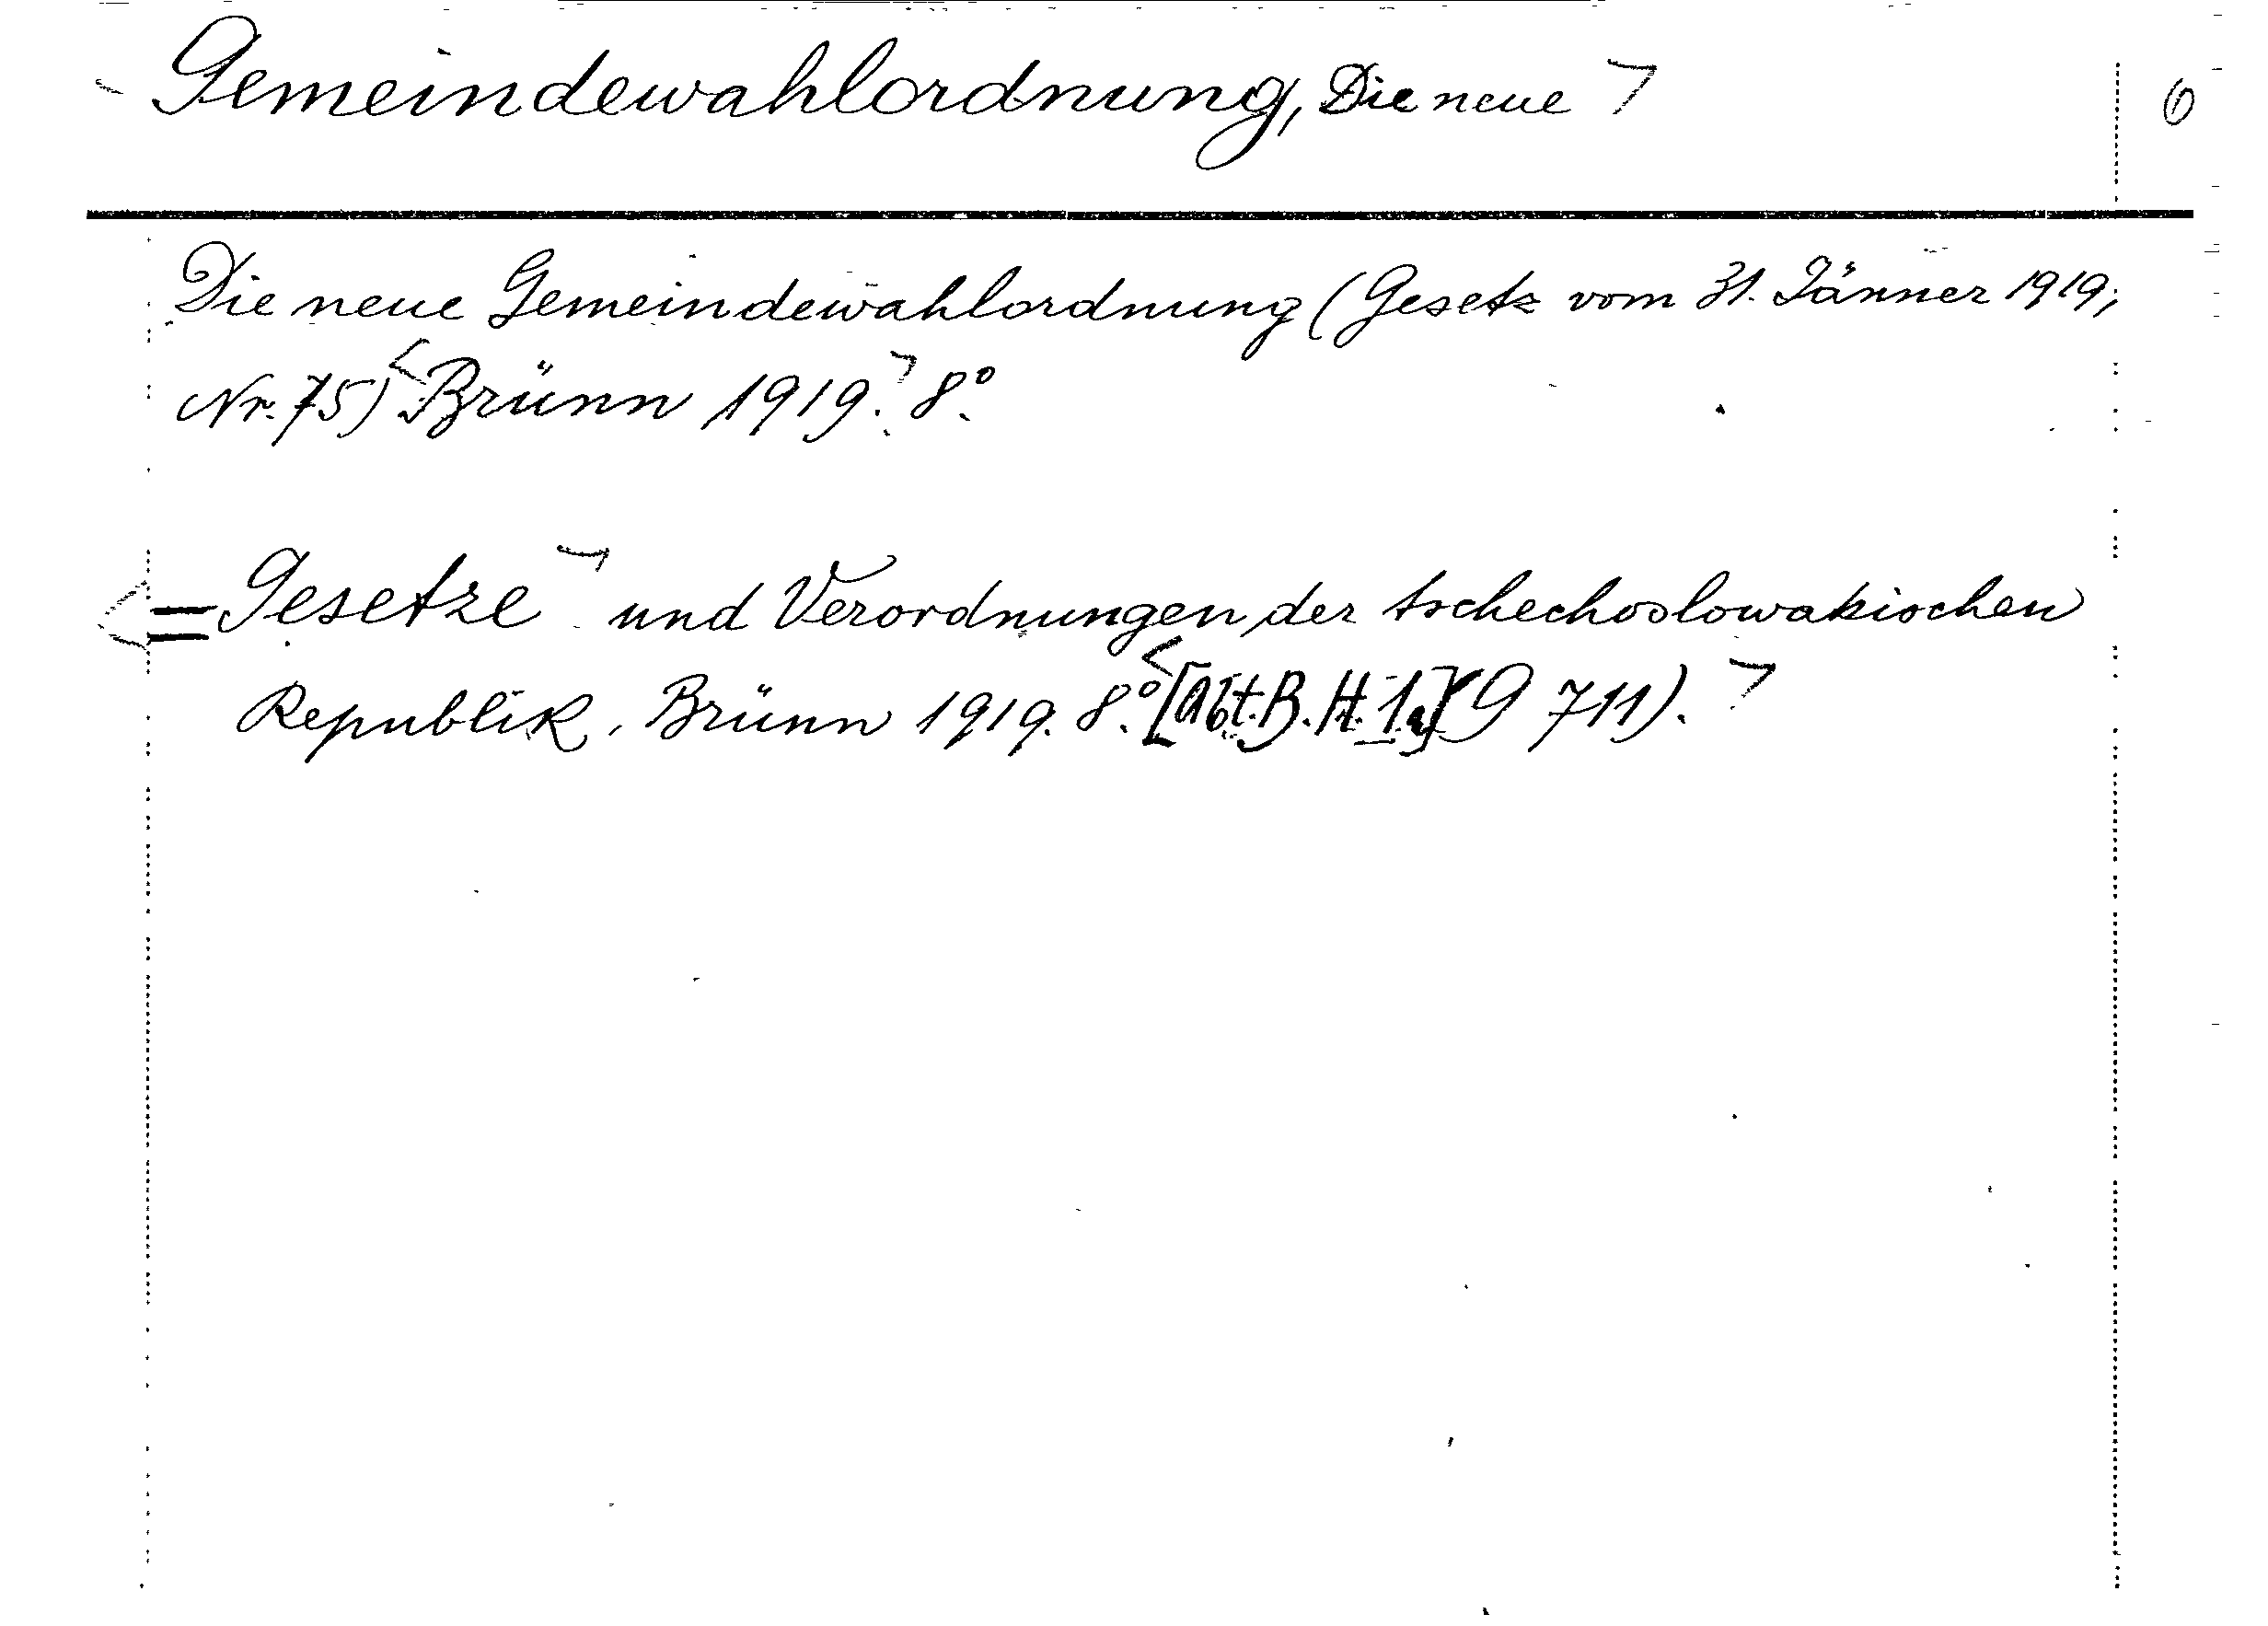 Gemeindewahlordnung, Die neue 6
Die neue Gemeindewahlordnung (Gesetz vom 31. Jänner 1919,
Nr. 75) Brünn 1919. 8°.
= Gesetze und Verordnungen der tschechoslowakischen
Republik. Brünn 1919. 8°. [Abt. B. H. 1.a] (9 711).